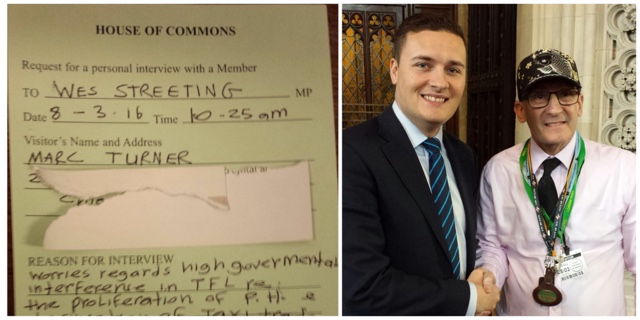 HOUSE OF COMMONS
Request for a personal interview with a Member
TO WES STREETING MP
Date 8-3.16 Time 10-25am
Visitor's Name and Address
MARC TURNER
2
REASON FOR INTERVIEW
worries regards high governmental
interference in TFL re:
the proliferation of P.H. &